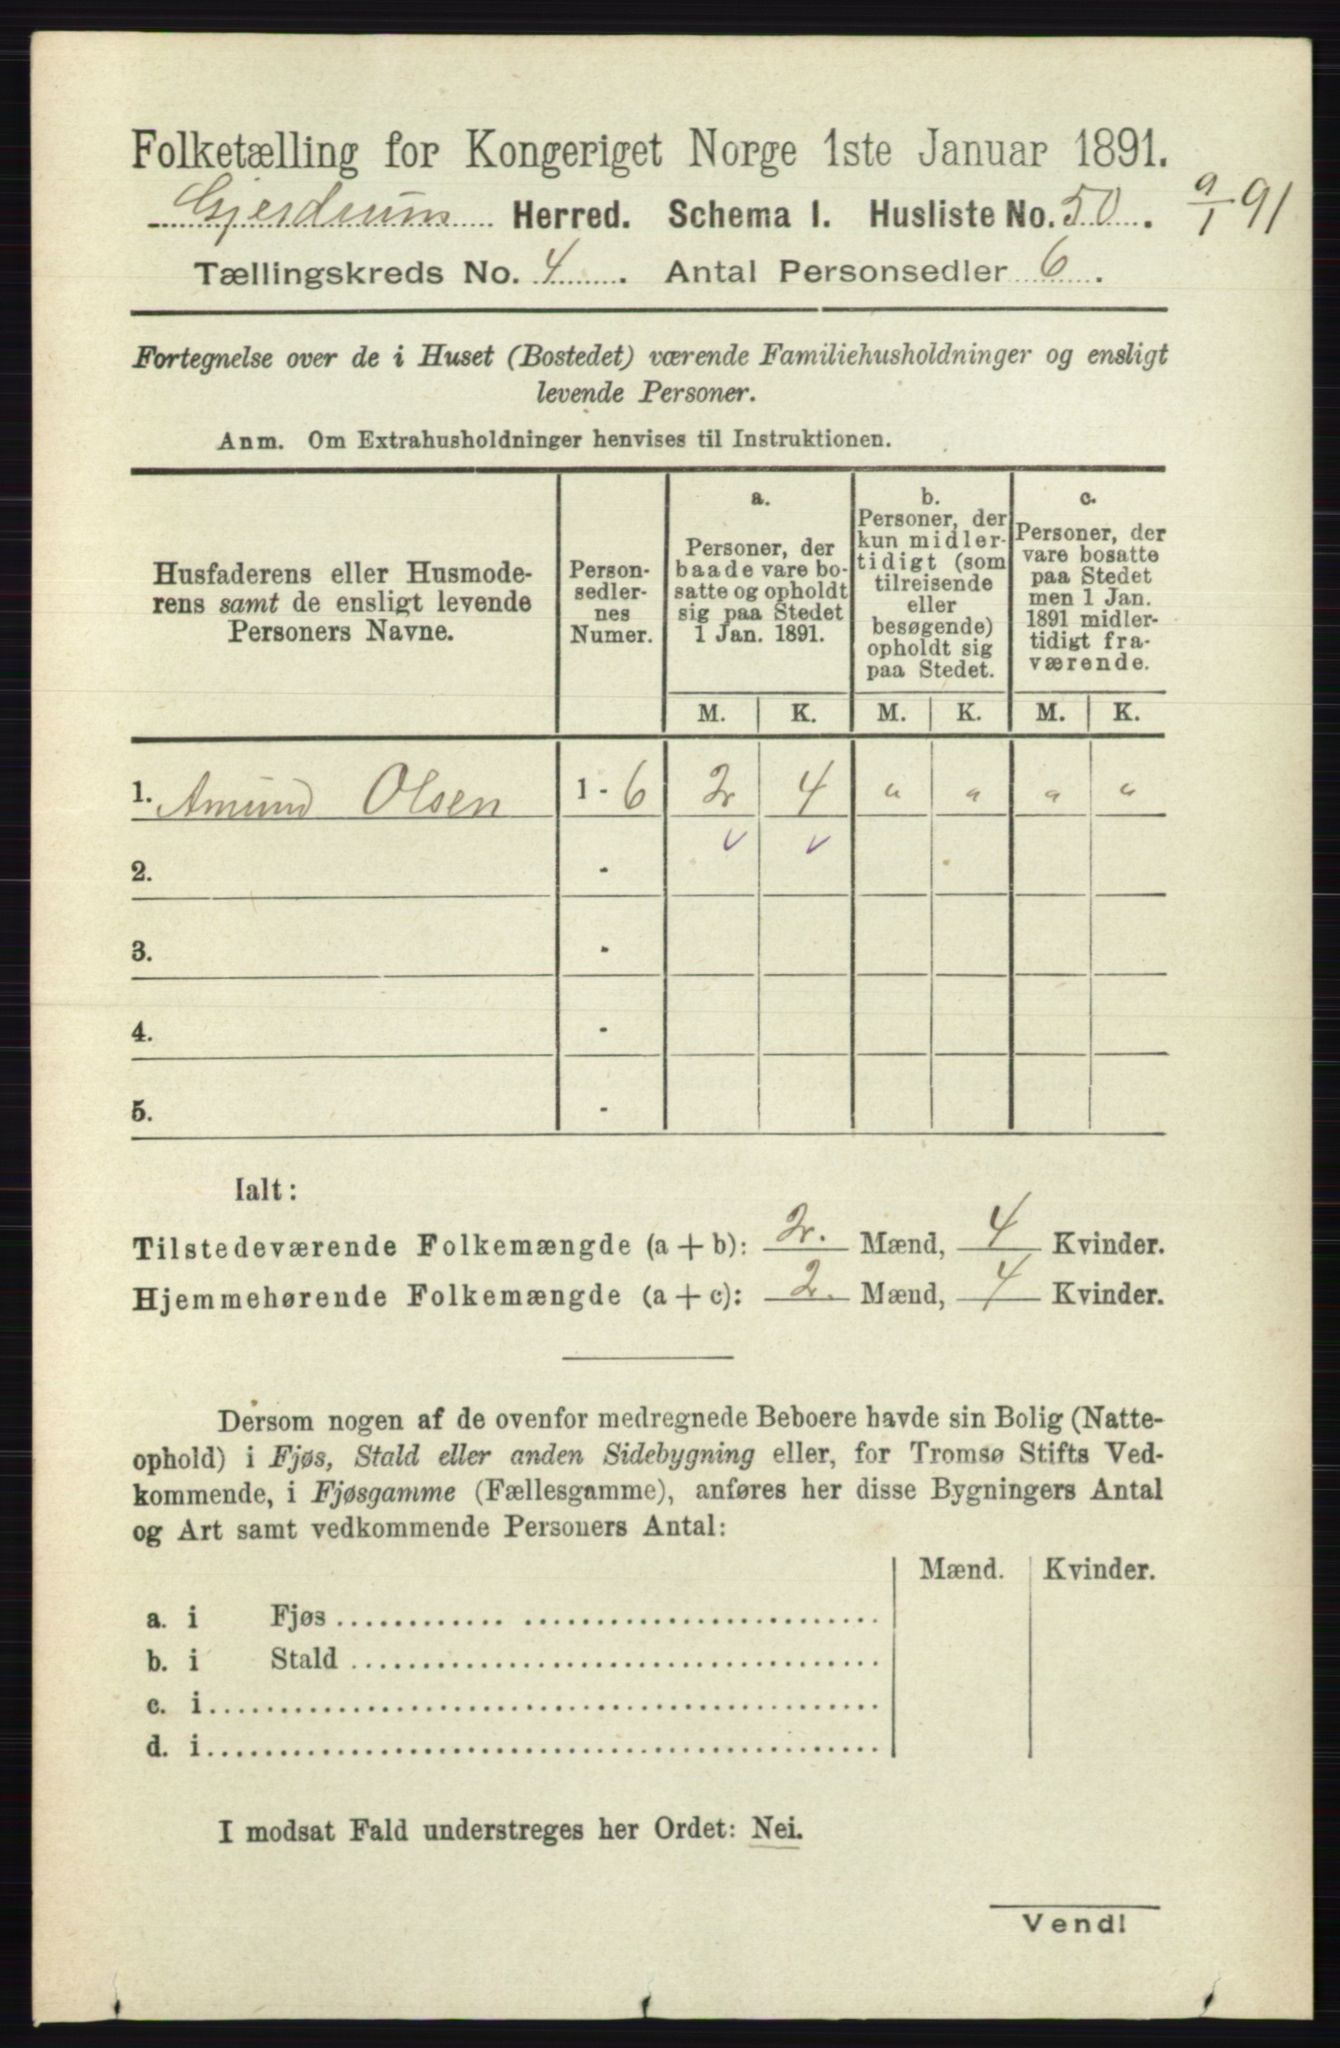 Folketælling for Kongeriget Norge 1ste Januar 1891.
Gjerdrums Herred. Schema I. Husliste No. 50. 9/1 91
Tællingskreds No. 4. Antal Personsedler 6.
Fortegnelse over de i Huset (Bostedet) værende Familiehusholdninger og ensligt
levende Personer.
Anm. Om Extrahusholdninger henvises til Instruktionen.
Husfaderens eller Husmode-
rens samt de ensligt levende
Personers Navne.
Person-
sedler-
nes
Numer.
a.
Personer, der
baade vare bo-
satte og opholdt
sig paa Stedet
1 Jan. 1891.
b.
Personer, der
kun midler-
tidigt (som
tilreisende
eller
besøgende)
opholdt sig
paa Stedet.
c.
Personer, der
vare bosatte
paa Stedet
men 1 Jan.
1891 midler-
tidigt fra-
værende.
M. K. M. K. M. K.
1. Amund Olsen 1 - 6 2 4 " " " "
2. -
3. -
4. -
5. -
Ialt:
Tilstedeværende Folkemængde (a + b): 2. Mænd, 4 Kvinder.
Hjemmehørende Folkemængde (a + c): 2. Mænd, 4 Kvinder.
Dersom nogen af de ovenfor medregnede Beboere havde sin Bolig (Natte-
ophold) i Fjøs, Stald eller anden Sidebygning eller, for Tromsø Stifts Ved-
kommende, i Fjøsgamme (Fællesgamme), anføres her disse Bygningers Antal
og Art samt vedkommende Personers Antal:
Mænd. Kvinder.
a. i Fjøs
b. i Stald
c. i
d. i
I modsat Fald understreges her Ordet: Nei.
Vend!